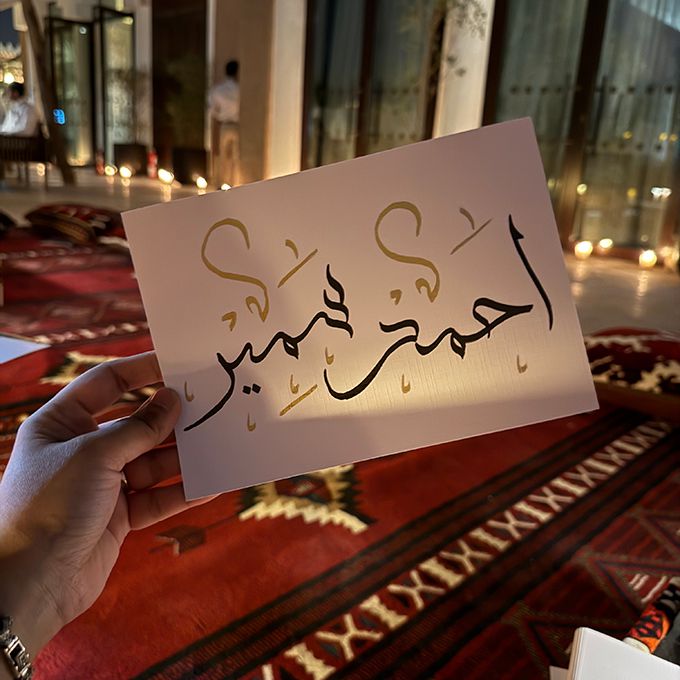 احمد سمير